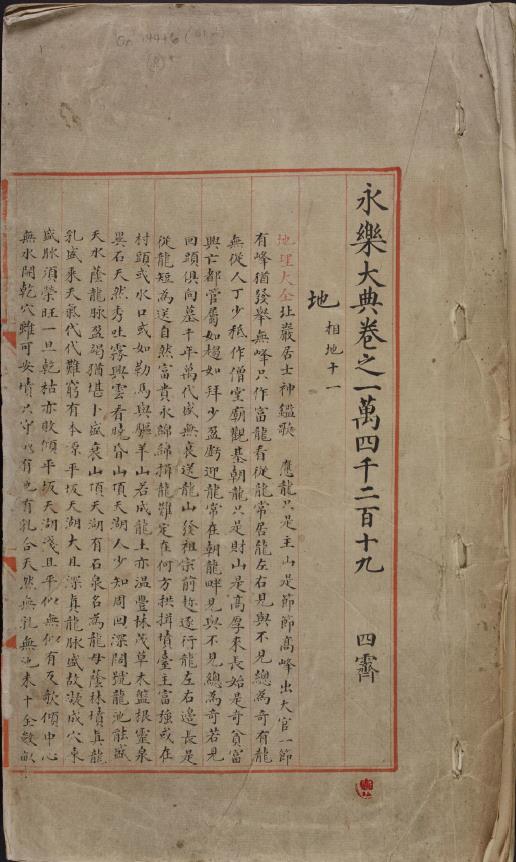 永樂大典卷之一萬四千二百十九 四霽
地 相地十一
地理大全 玭巖居士神鑑歌 應龍只是主山是節節高峰出大官一節
有峰猶發舉無峰只作富龍看從龍常居龍左右見與不見總為奇有龍
無從人丁少秪作僧堂廟觀基朝龍只是財山是高厚來長始是奇貧富
興亡都管屬如趨如拜少盈虧迎龍常在朝龍畔見與不見總為奇若見
回頭俱向墓千年萬代盛無衰送龍山發祖宗前趂逐行龍左右邊長是
從龍短為送自然富貴永綿綿揖龍難定在何方拱揖墳臺主富強或在
村頭或水口或如勒馬與驅羊山若成龍土亦溫豐林茂草木盤根靈泉
異石天然秀吐霧興雲看曉昏山頂天湖人少知周回深闊號龍池能盛
天水蔭龍脉盈竭猶堪卜盛衰山頂天湖有石泉名為龍母蔭林墳真龍
乳盛來天氣代代難窮有本源平坂天湖大且深真龍脉盛故凝成穴乘
盛脉須榮旺一旦乾枯亦敗傾平坂天湖淺且平似無似有及欹傾中心
無水開乾穴雖可安墳只守 有 有乳合天然無乳無池未十全 畝